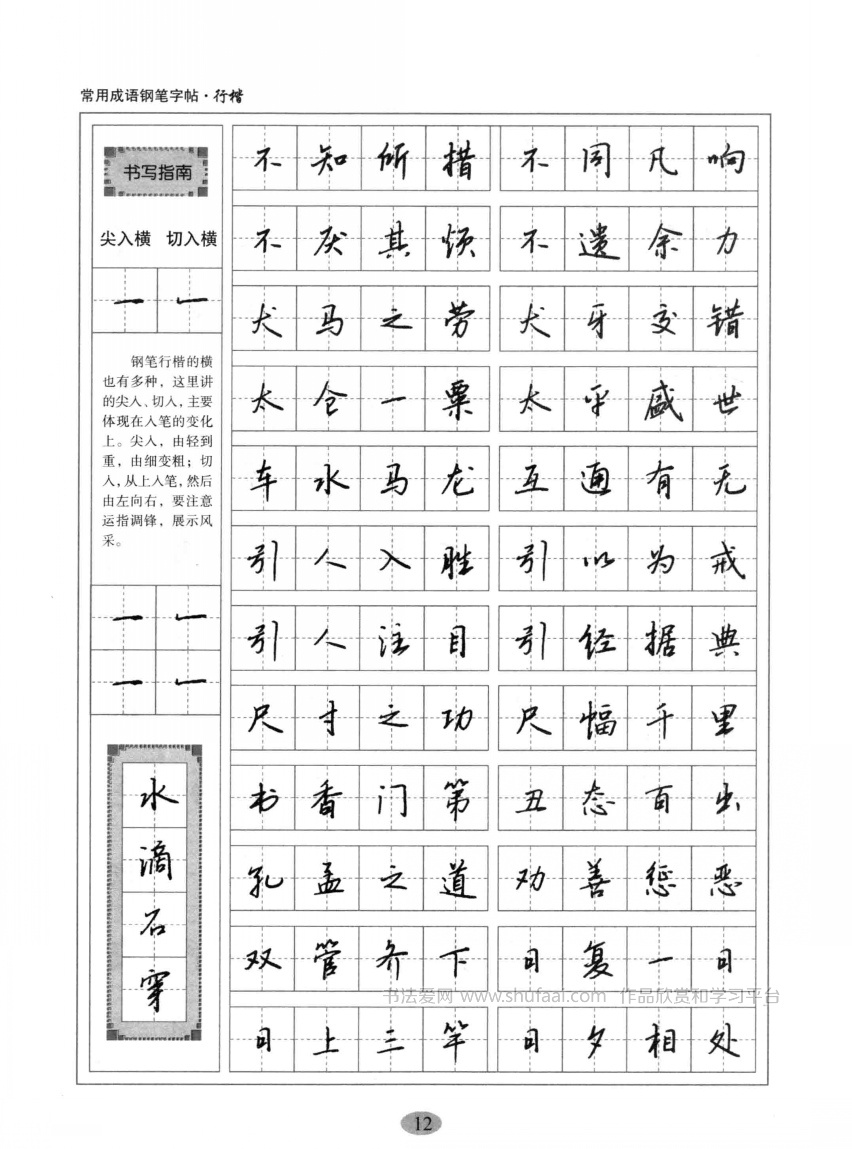 常用成语钢笔字帖·行楷
书写指南
尖入横 切入横
一 一
钢笔行楷的横
也有多种，这里讲
的尖入、切入，主要
体现在入笔的变化
上。尖入，由轻到
重，由细变粗；切
入，从上入笔，然后
由左向右，要注意
运指调锋，展示风
采。
一 一
一 一
水滴石穿
不知所措 不同凡响
不厌其烦 不遗余力
犬马之劳 犬牙交错
太仓一粟 太平盛世
车水马龙 互通有无
引人入胜 引以为戒
引人注目 引经据典
尺寸之功 尺幅千里
书香门第 丑态百出
孔孟之道 劝善惩恶
双管齐下 日复一日
日上三竿 日夕相处
书法爱网 www.shufaai.com 作品欣赏和学习平台
12